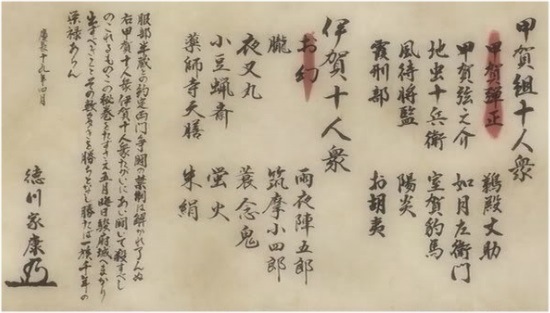 甲賀組十人衆
甲賀彈正　鵜殿丈助
甲賀弦之介　如月左衛門
地虫十兵衛　室賀豹馬
風待将監　陽炎
霞刑部　お胡夷
伊賀十人衆
お幻　雨夜陣五郎
朧　筑摩小四郎
夜叉丸　蓑念鬼
小豆蝋斎　螢火
薬師寺天膳　朱絹
服部半蔵との約定両門争闘の禁制は解かれ了んぬ
右甲賀十人衆伊賀十人衆たがいにあい闘いて殺すべし
のこれるものこの秘巻をたずさえ五月晦日駿府城へまかり
出ずべきことその数多きを勝ちとなし勝たば一族千年の
栄禄あらん
慶長十九年四月
徳川家康